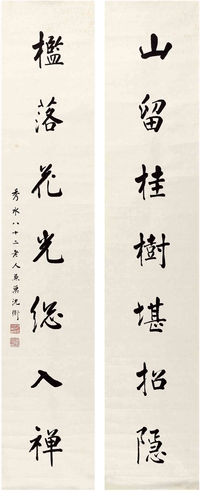 山留桂樹堪招隱
檻落花光總入禪
秀水八十二老人
沈衛